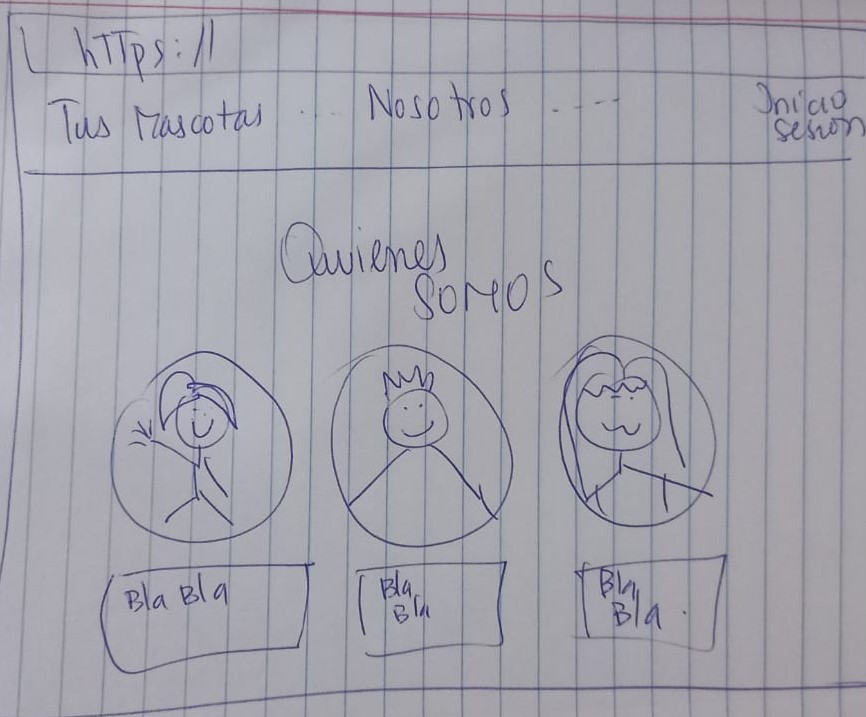 hTTps://
Tus Mascotas ... Nosotros ----
Inicio
sesion
Quienes
somos
Bla Bla
Bla
Bla
Bla
Bla.